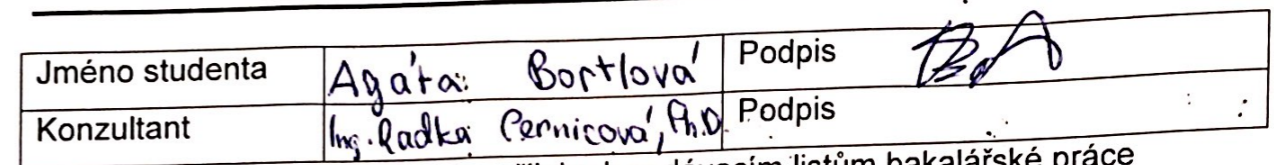 Jméno studenta Agáta Bortlová Podpis
Konzultant Ing. Radka Pernicová, Ph.D. Podpis
listům bakalářské práce